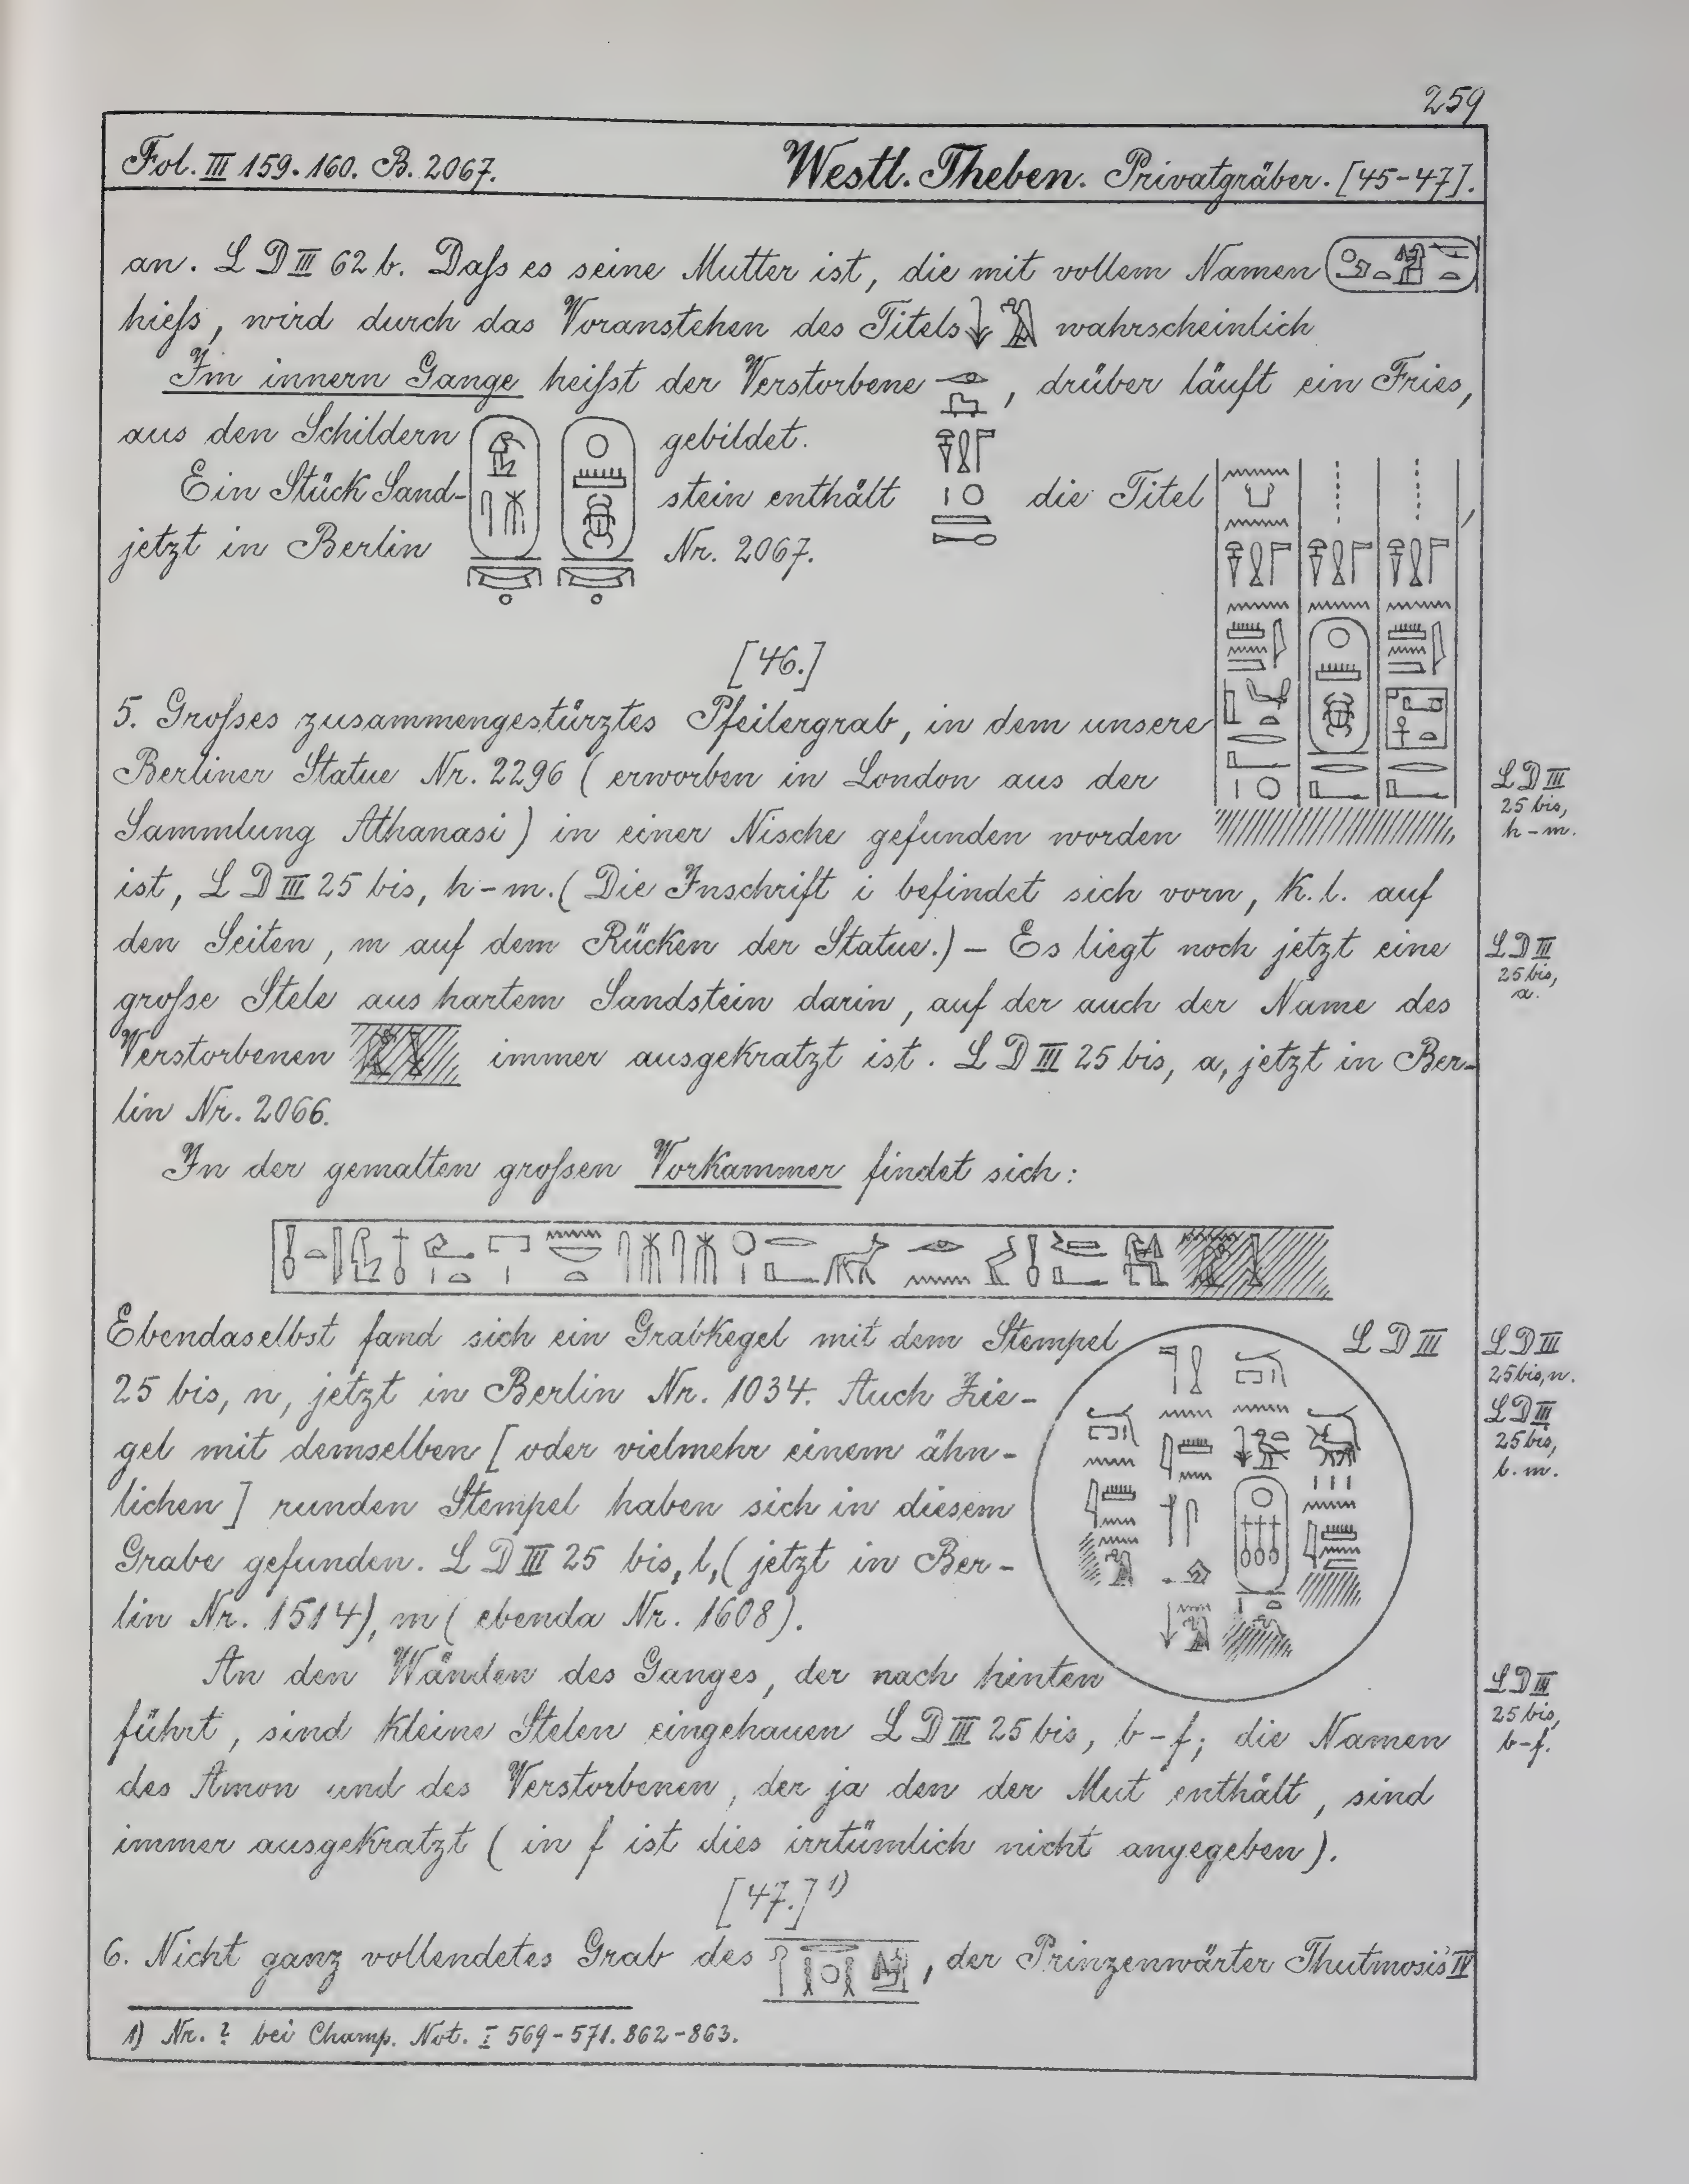 259
Fol. III 159. 160. B. 2067.
Westl. Theben. Privatgräber. [45-47].
an. L D III 62 b. Daſs es seine Mutter ist, die mit vollem Namen
hieſs, wird durch das Voranstehen des Titels wahrscheinlich
Im innern Gange heiſst der Verstorbene , drüber läuft ein Fries,
aus den Schildern gebildet.
Ein Stück Sand- stein enthält die Titel ,
jetzt in Berlin Nr. 2067.
[46.]
5. Groſses zusammengestürztes Pfeilergrab, in dem unsere
Berliner Statue Nr. 2296 ( erworben in London aus der
Sammlung Athanasi) in einer Nische gefunden worden
ist, L D III 25 bis, h-m. ( Die Inschrift i befindet sich vorn, k. l. auf
den Seiten, m auf dem Rücken der Statue.) – Es liegt noch jetzt eine
groſse Stele aus hartem Sandstein darin, auf der auch der Name des
Verstorbenen immer ausgekratzt ist. L D III 25 bis, a, jetzt in Ber-
lin Nr. 2066.
In der gemalten groſsen Vorkammer findet sich:
Ebendaselbst fand sich ein Grabkegel mit dem Stempel L D III
25 bis, n, jetzt in Berlin Nr. 1034. Auch Zie-
gel mit demselben [ oder vielmehr einem ähn-
lichen ] runden Stempel haben sich in diesem
Grabe gefunden. L D III 25 bis, l, ( jetzt in Ber-
lin Nr. 1514), m ( ebenda Nr. 1608).
An den Wänden des Ganges, der nach hinten
führt, sind kleine Stelen eingehauen L D III 25 bis, b-f; die Namen
des Amon und des Verstorbenen, der ja den der Mut enthält, sind
immer ausgekratzt ( in f ist dies irrtümlich nicht angegeben).
[47.] 1)
6. Nicht ganz vollendetes Grab des , der Prinzenwärter Thutmosis' IV
1) Nr. ? bei Champ. Not. I 569-571. 862-863.
L D III
25 bis,
h-m.
L D III
25 bis,
a.
L D III
25 bis, n.
L D III
25 bis,
l. m.
L D III
25 bis,
b-f.